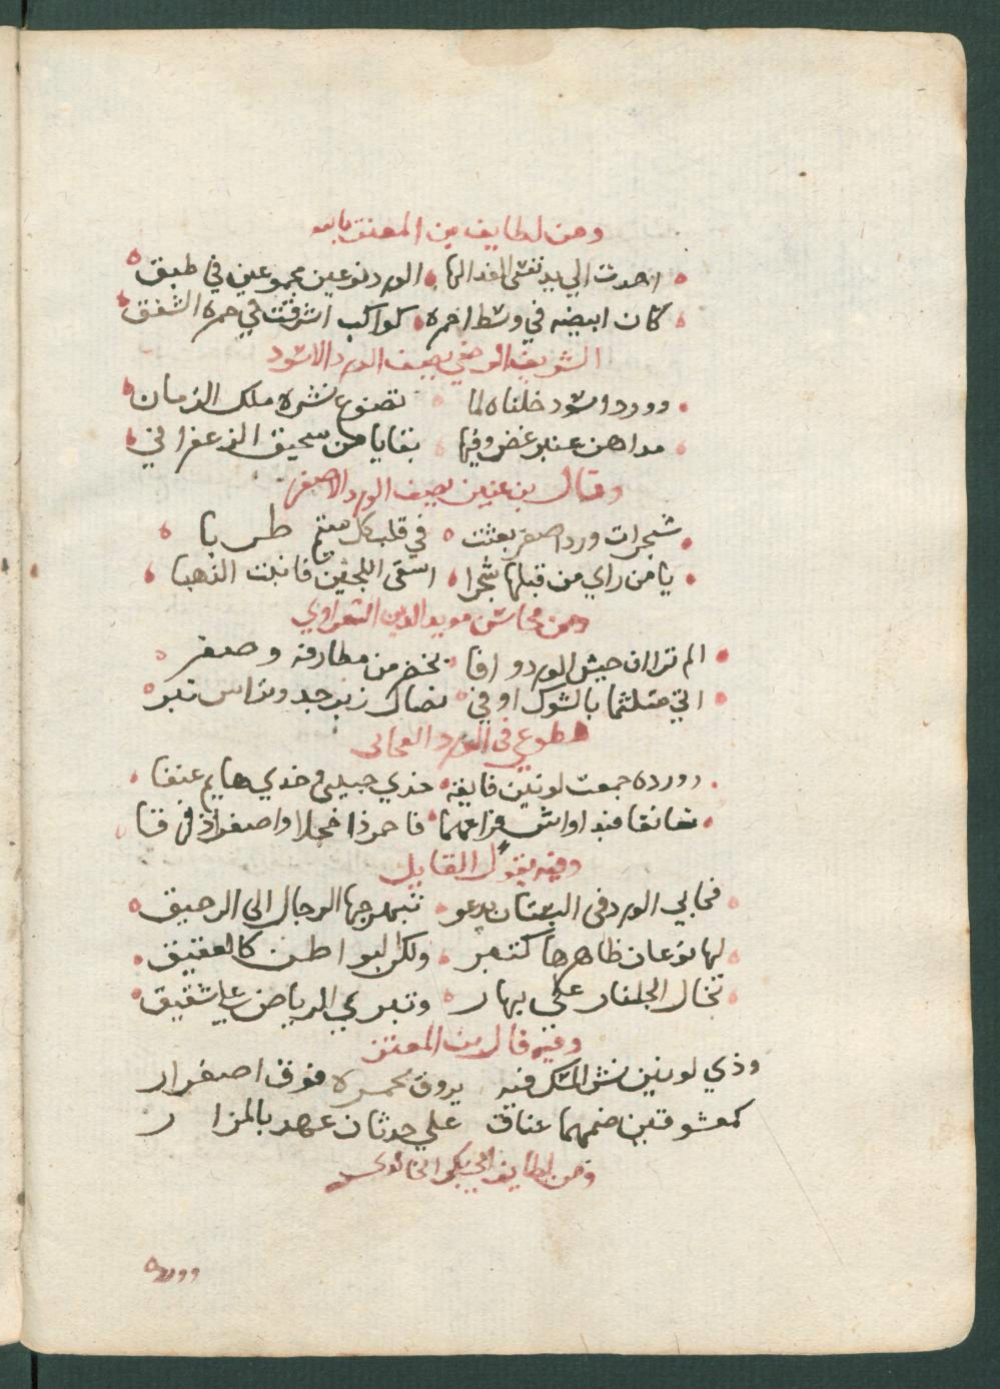 ومن لطايف بن المعتز بالله
اهدت الي يد نفسي الفدا لها الورد نوعين مجموعين في طبق
كان ابيضه في وسط احمره كواكب اشرقت في حمرة الشفق
الشريف الرضي يصف الورد الاسود
وورد اسود خلناه لما تضوع نشره ملك الزمان
مداهن عنبر غض وفيها بقايا من سحيق الزعفراني
وقال بن عنين يصف الورد الاصفر
شجرات ورد اصفر بعثت في قلب كل متيم طربا
يا من راي من قبلها شجرا اسقي اللجين فانبت الذهبا
ومن محاسن مويد الدين الشعراوي
الم تر ان جيش الورد وافا بخضر من مطارفه وصفر
اتي متلثما بالشوك اوفي نصال زبرجد وتراس تبر
مطوعي في الورد العجاني
ووردة جمعت لونين فايقه خدي حبيبي وخدي هايم عنقا
تعانقا فبدا واش فراعهما فاحمر ذا خجلا واصفر ذا فرقا
وفيه يقول القايل
فحابي الورد في البستان يدعو الرجال الي الرحيق
لها نوعان ظاهرها كتبر ولكن البواطن كالعقيق
تخال الجلنار علي بهار وتبر في الرياض علي شقيق
وفيه قال بن المعتز
وذي لونين نشر المسك فيه يروق بحمرة فوق اصفرار
كمعشوقين ضمهما عناق علي حدثان عهد بالمزار
ومن لطايف ابي بكر الخالدي
وورده